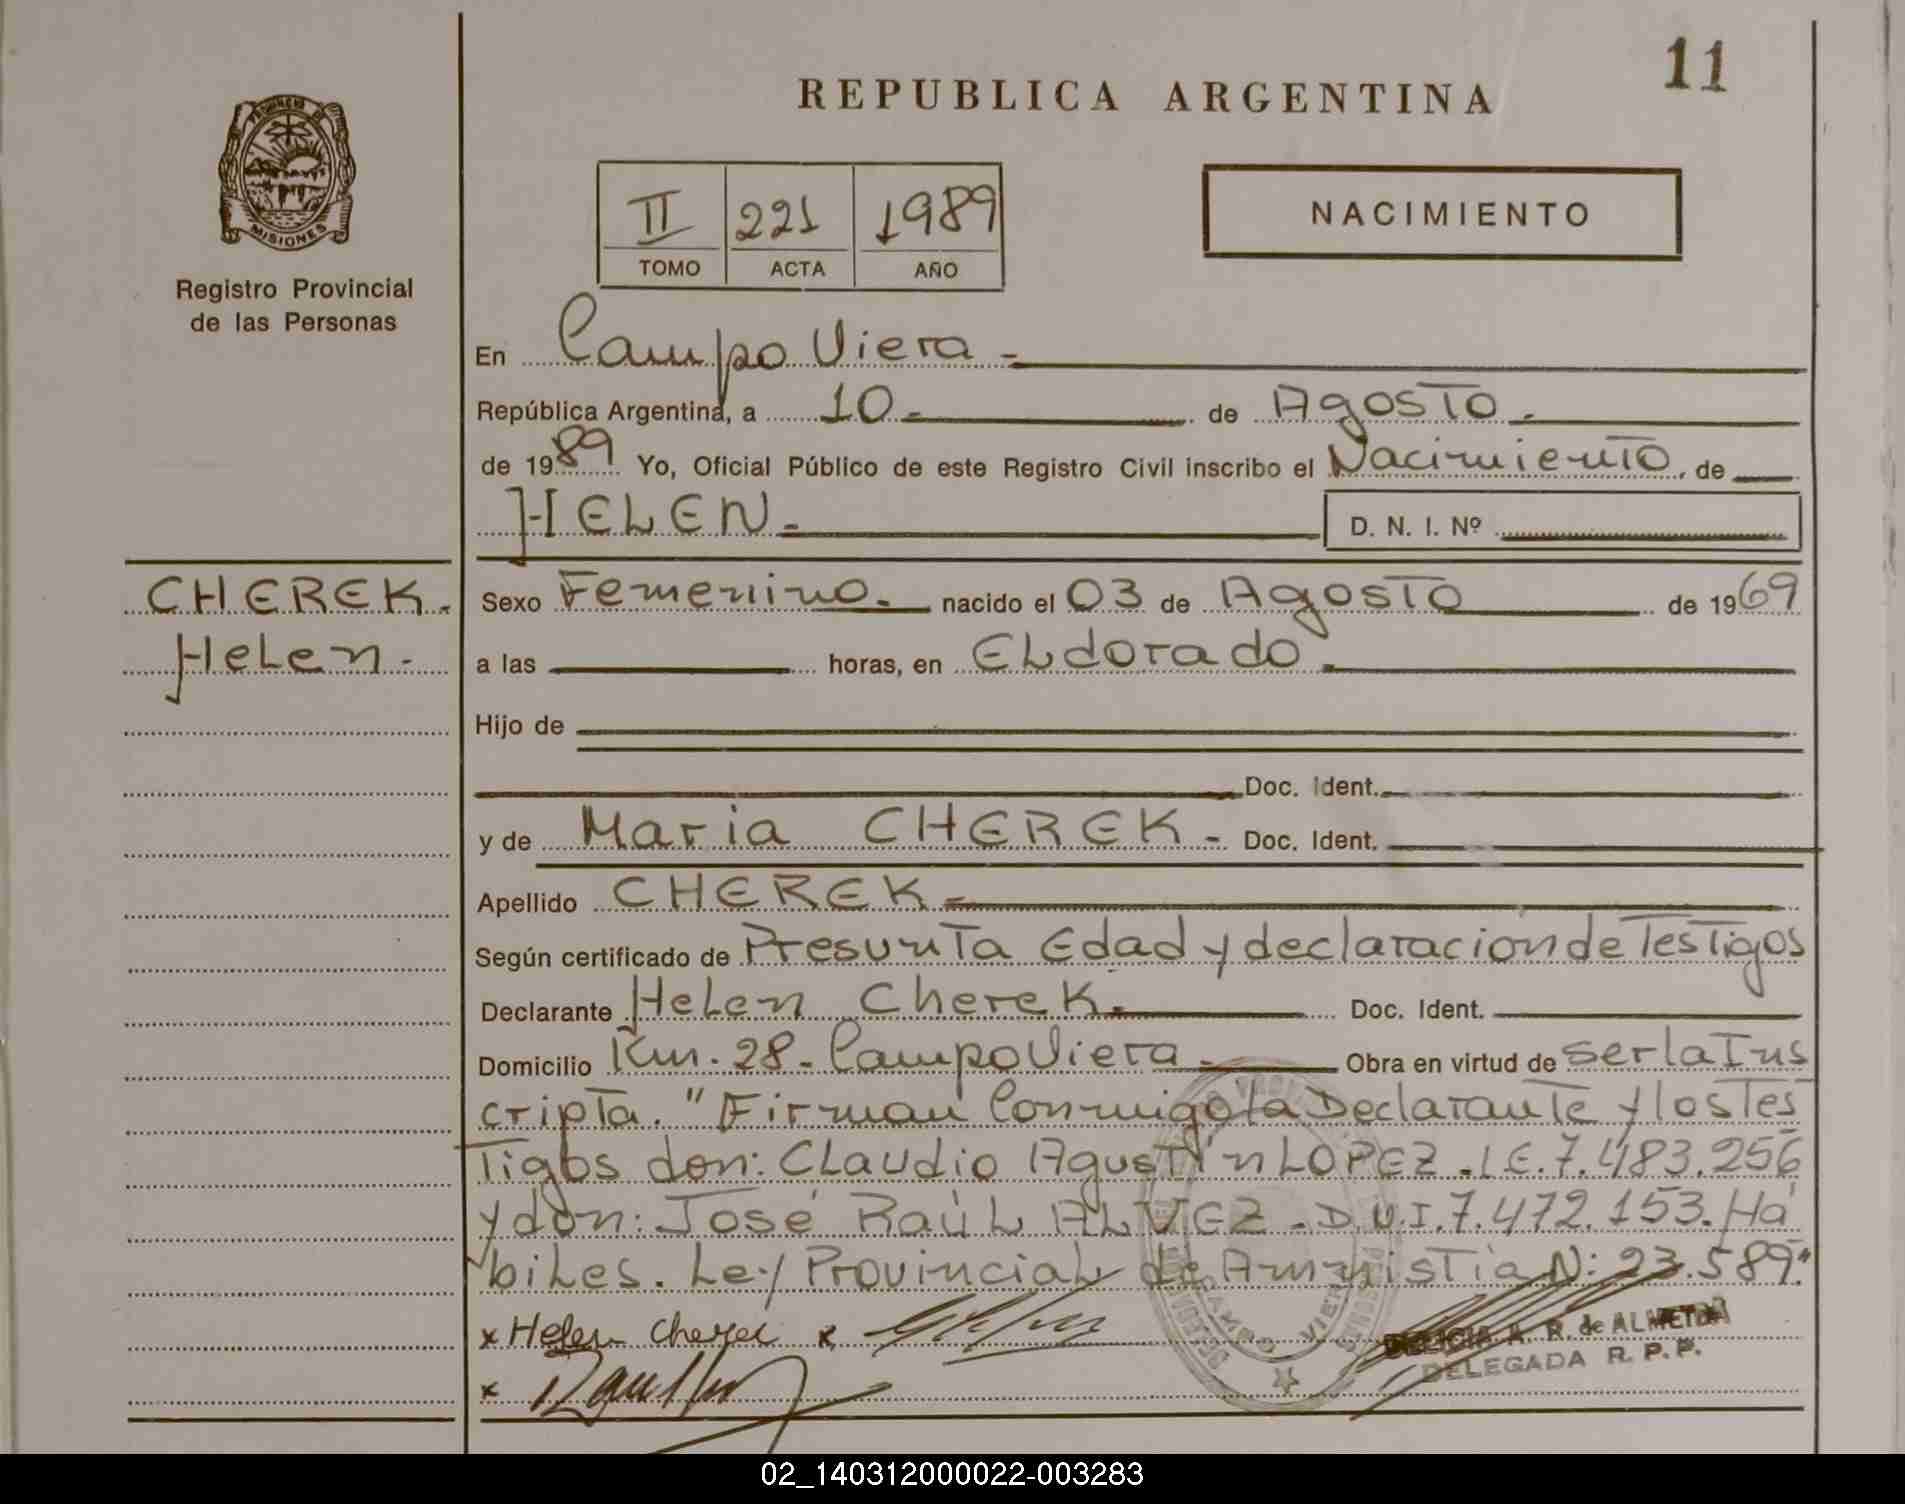 11
REPUBLICA ARGENTINA
PROVINCIA DE
MISIONES
Registro Provincial
de las Personas
II 221 1989
TOMO ACTA AÑO
NACIMIENTO
En Campo Viera -
República Argentina, a 10 - de Agosto -
de 1989 Yo, Oficial Público de este Registro Civil inscribo el Nacimiento, de
HELEN - D. N. I. Nº
CHEREK -
Helen -
Sexo Femenino - nacido el 03 de Agosto de 1969
a las horas, en ELdorado -
Hijo de
Doc. Ident.
y de Maria CHEREK - Doc. Ident.
Apellido CHEREK -
Según certificado de Presunta Edad y declaración de Testigos
Declarante Helen Cherek - Doc. Ident.
Domicilio Km. 28 - Campo Viera - Obra en virtud de ser la Ins
cripta. "Firman Conmigo la Declarante y los Tes
Tigos don: CLaudio Agustín LOPEZ - L E. 7.483.256
y don: José Raúl ALVEZ - D.N.I. 7.472.153. Há
biles. Ley Provincial de Amnistía N: 23.589."
x Helen Cherek x
DELICIA A. R. de ALMEIDA
DELEGADA R. P. P.
x
CAMPO VIERA
02_140312000022-003283